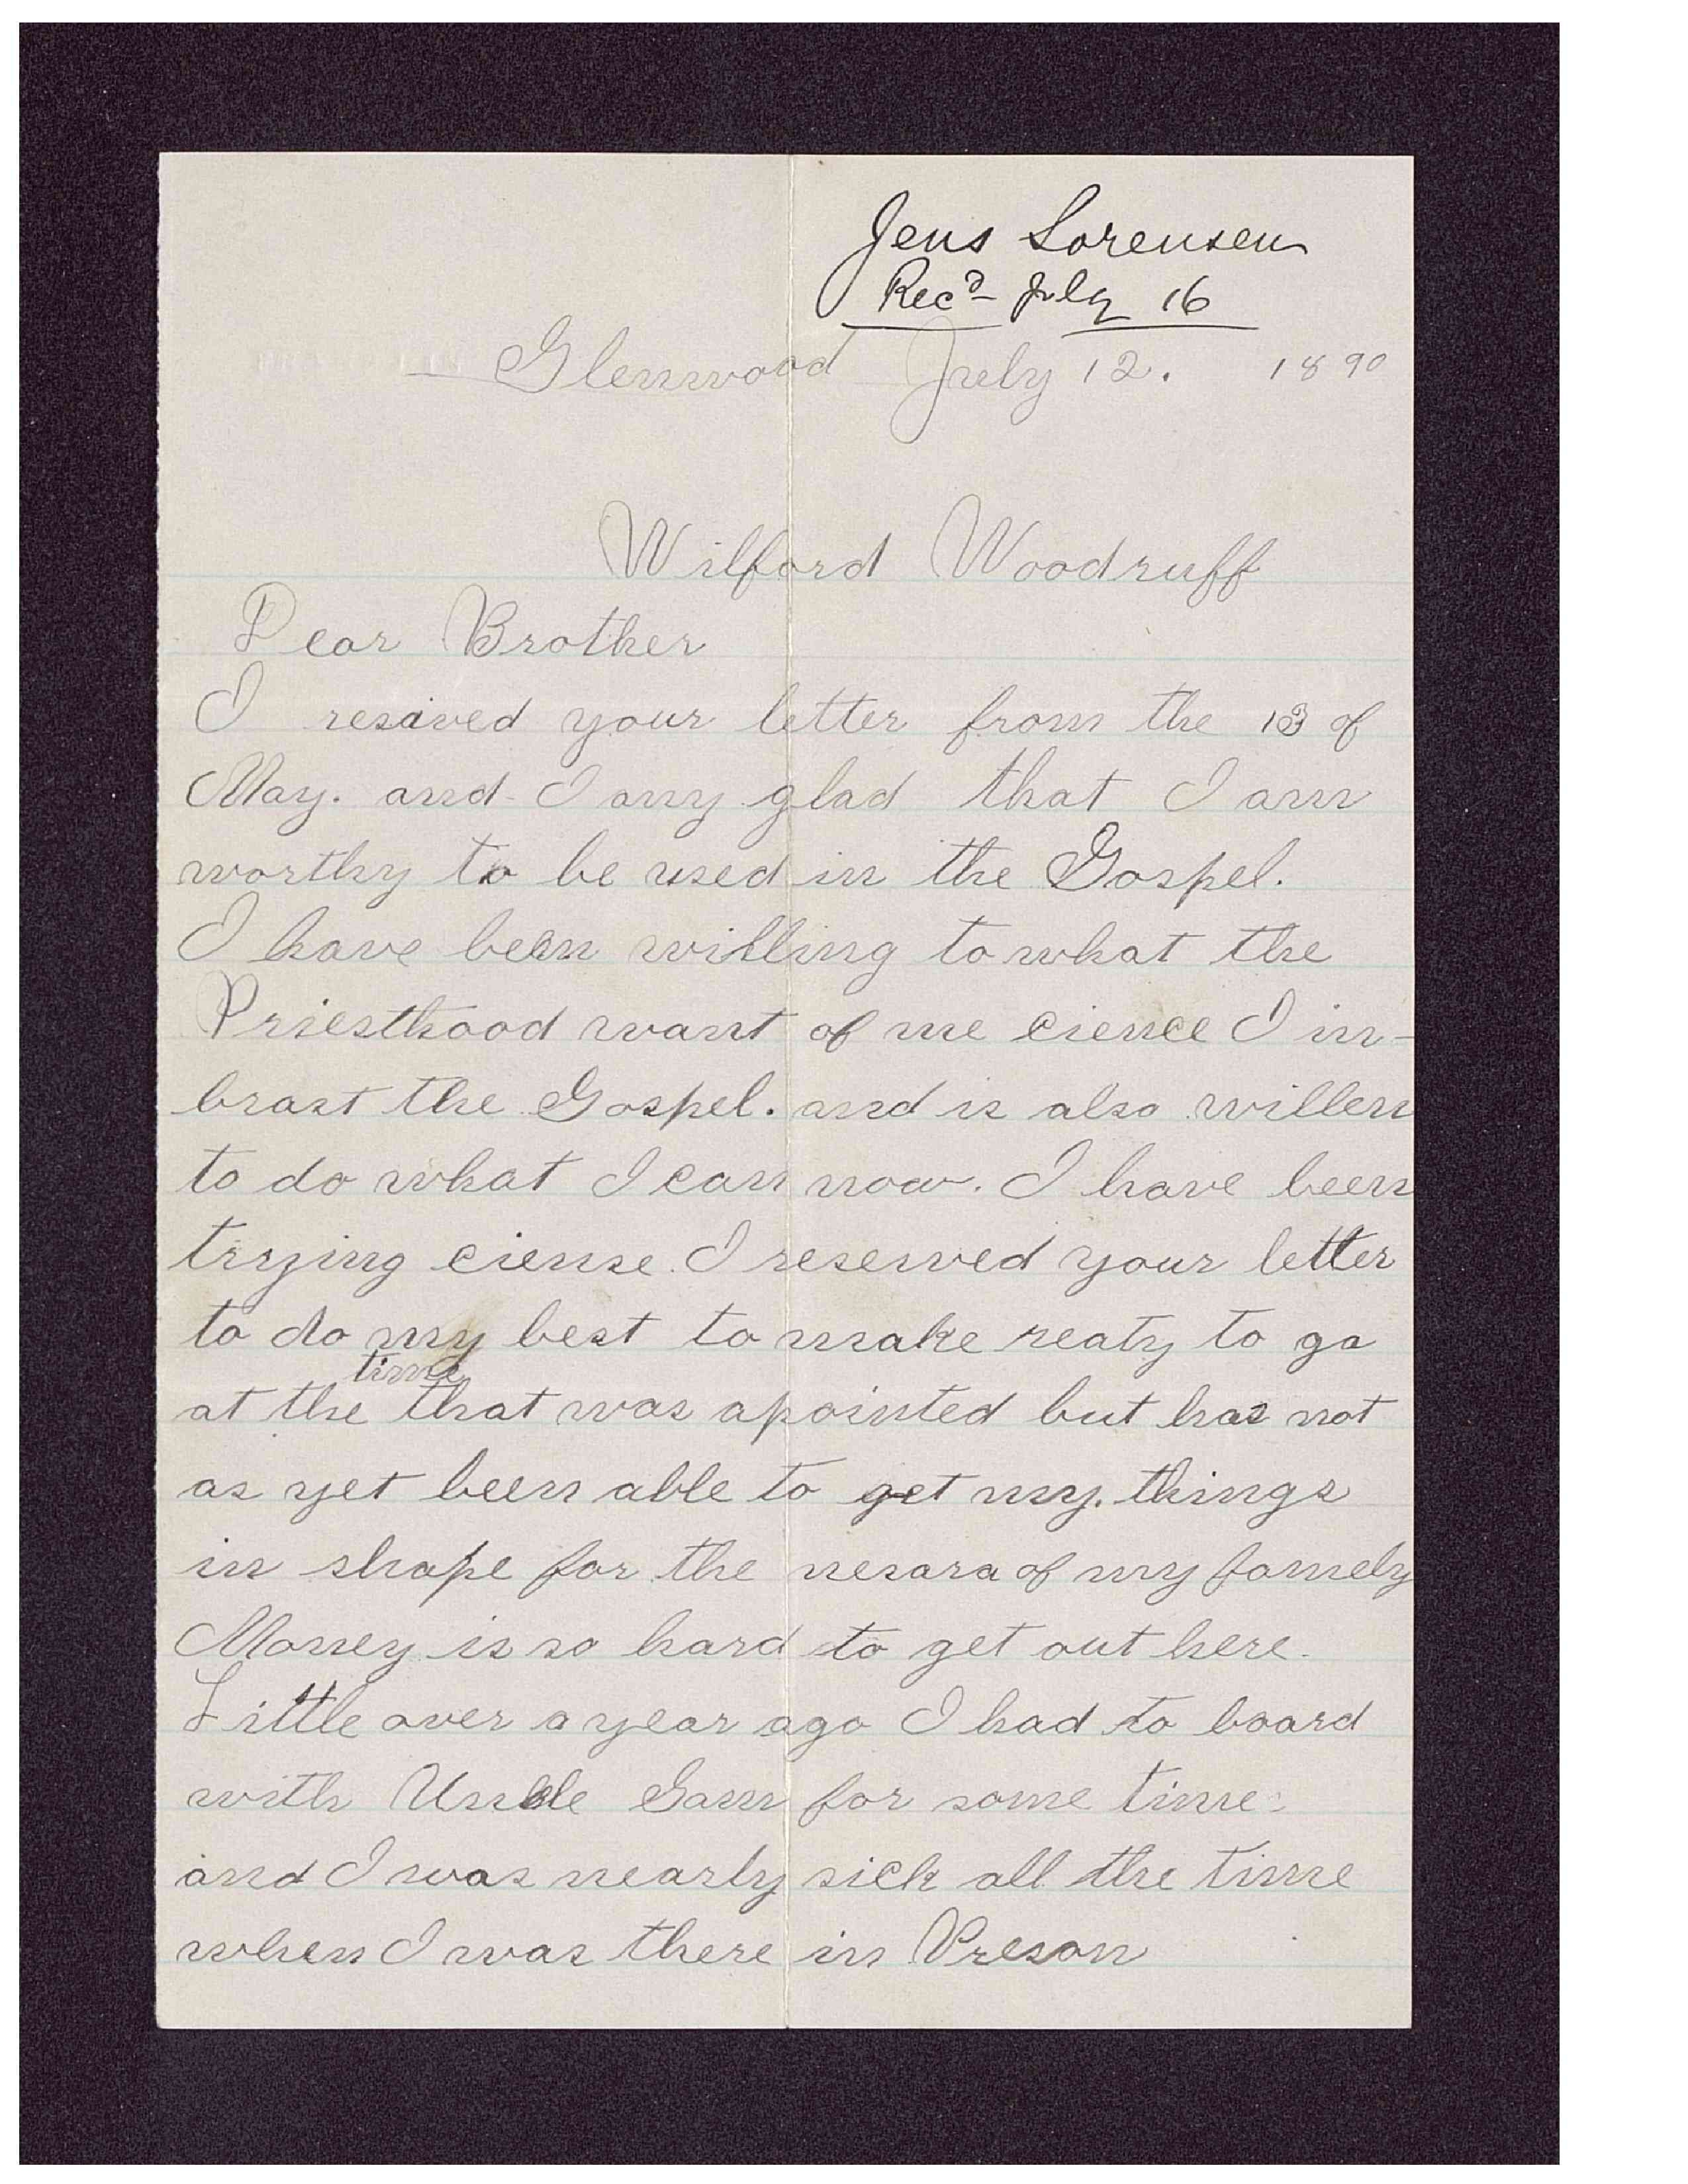 Jens Sorensen
Rec'd July 16
Glenwood July 12. 1890
Wilford Woodruff
Dear Brother
I resaived your letter from the 13 of
May. and I amy glad that I am
worthy to be used in the Gospel.
I have been willing to what the
Priesthood want of me cience I in-
brast the Gospel. and is also willen
to do what I can now. I have been
trying ciense I reserved your letter
to do my best to make reaty to go
time
at the that was apointed but has not
as yet been able to get my. things
in shape for the nesara of my famely
Money is so hard to get out here.
Little over a year ago I had to board
with Uncle Sam for some time.
and I was nearly sick all the time
when I was there in Preson